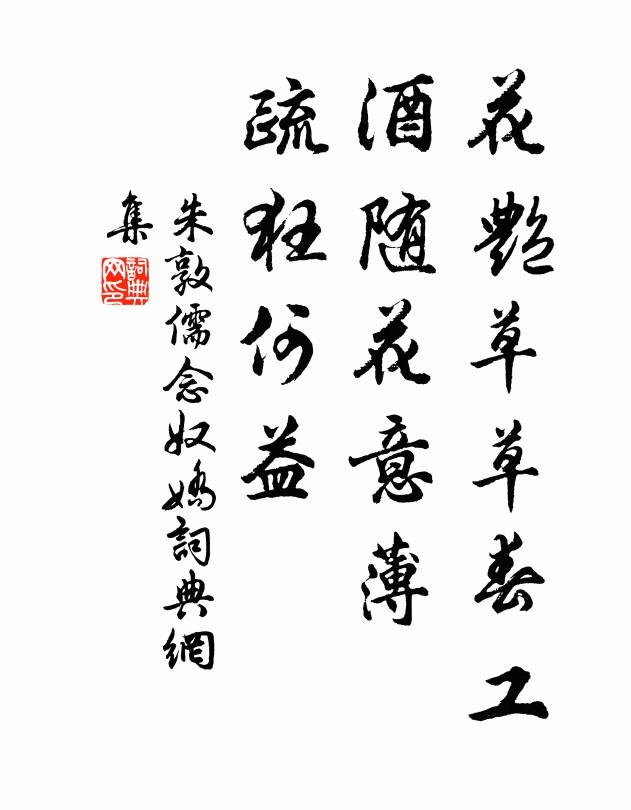 花艷草草春工
酒随花意薄
疏狂何益
朱敦儒念奴嬌詞典網
集
詞典
网印